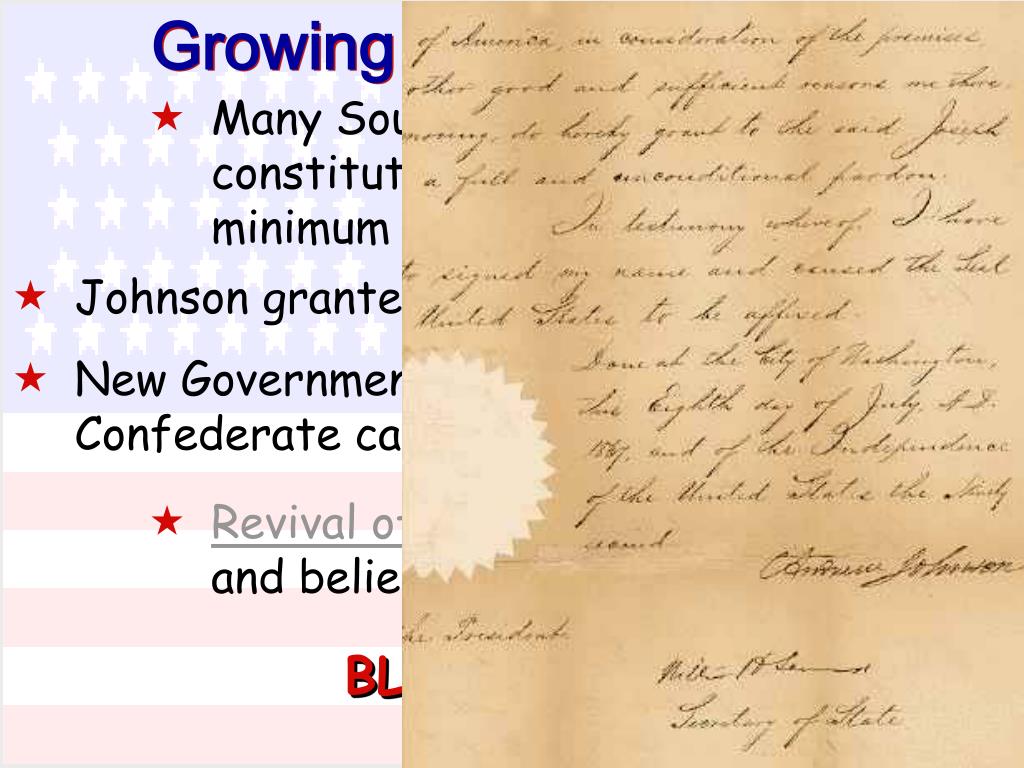 Growing
Many Sou
constitut
minimum
Johnson grante
New Governmen
Confederate ca
Revival of
and belie
BL
of America, in consideration of the premises,
other good and sufficient reasons me there-
moving, do hereby grant to the said Joseph
a full and unconditional pardon.
In testimony whereof, I have
to signed my name and caused the Seal
United States to be affixed.
Done at the City of Washington,
this Eighth day of July, A.D.
1867, and of the Independence
of the United States the Ninety
second.
Andrew Johnson
the President:
Secretary of State